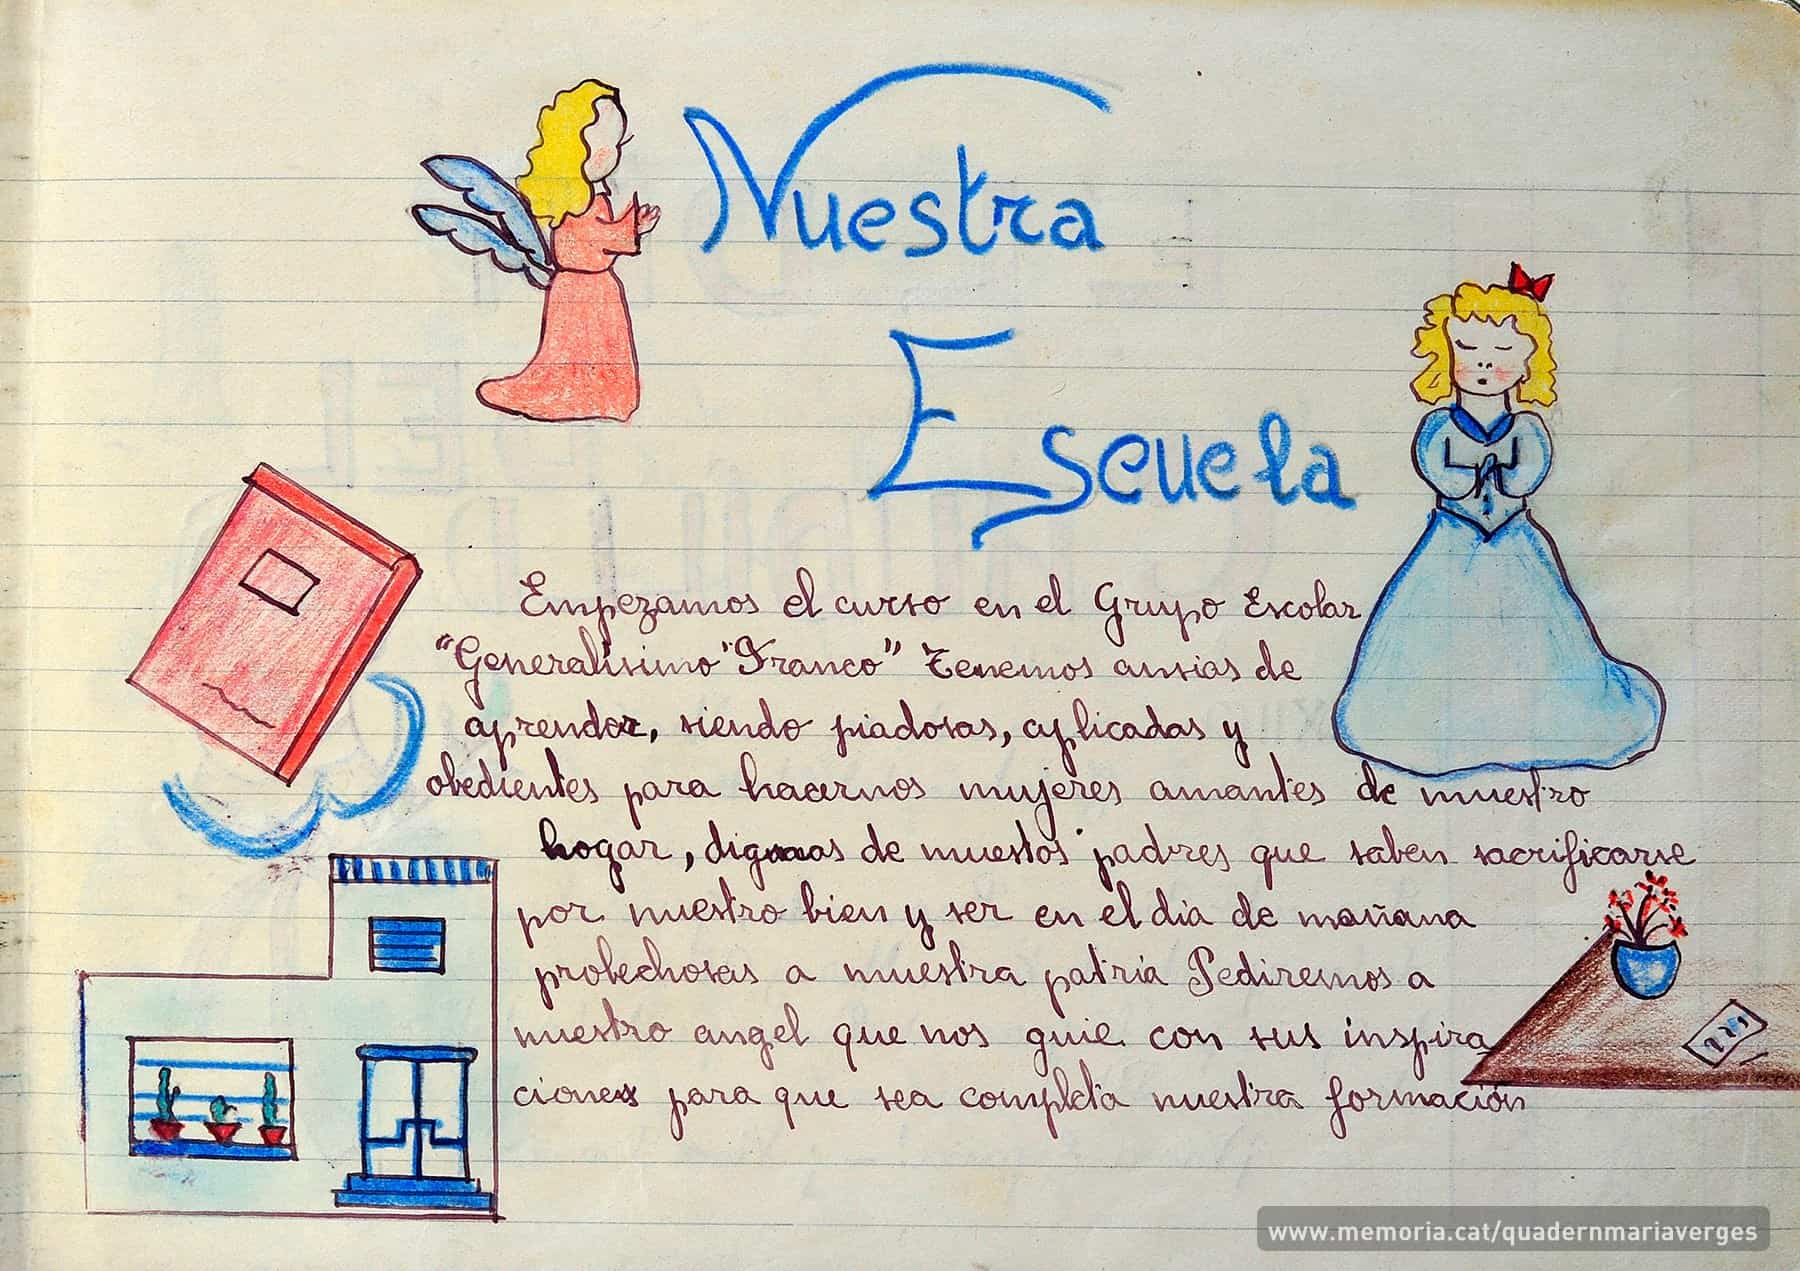 Nuestra
Escuela
Empezamos el curso en el Grupo Escolar
"Generalísimo "Franco" Tenemos ansias de
aprender, siendo piadosas, aplicadas y
obedientes para hacernos mujeres amantes de nuestro
hogar, dignas de nuestos padres que saben sacrificarse
por nuestro bien y ser en el dia de mañana
probechosas a nuestra patria Pediremos a
nuestro angel que nos guie con sus inspira
ciones para que sea completa nuestra formación
www.memoria.cat/quadernmariaverges